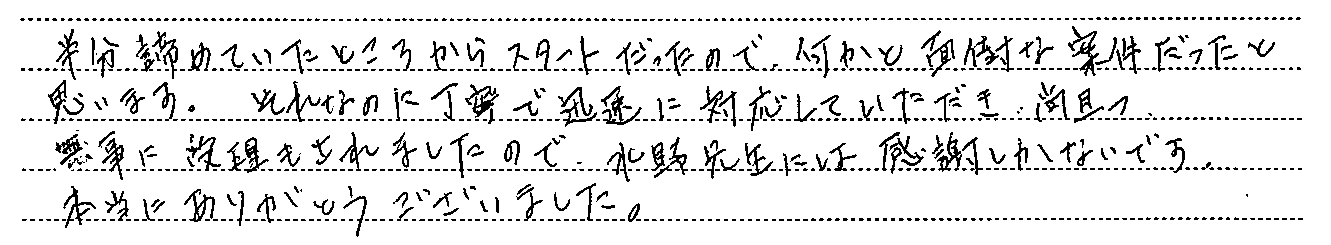 半分諦めていたところからスタートだったので、何かと面倒な案件だったと
思います。それなのに丁寧で迅速に対応していただき、尚且つ、
無事に受理もされましたので、水野先生には感謝しかないです。
本当にありがとうございました。